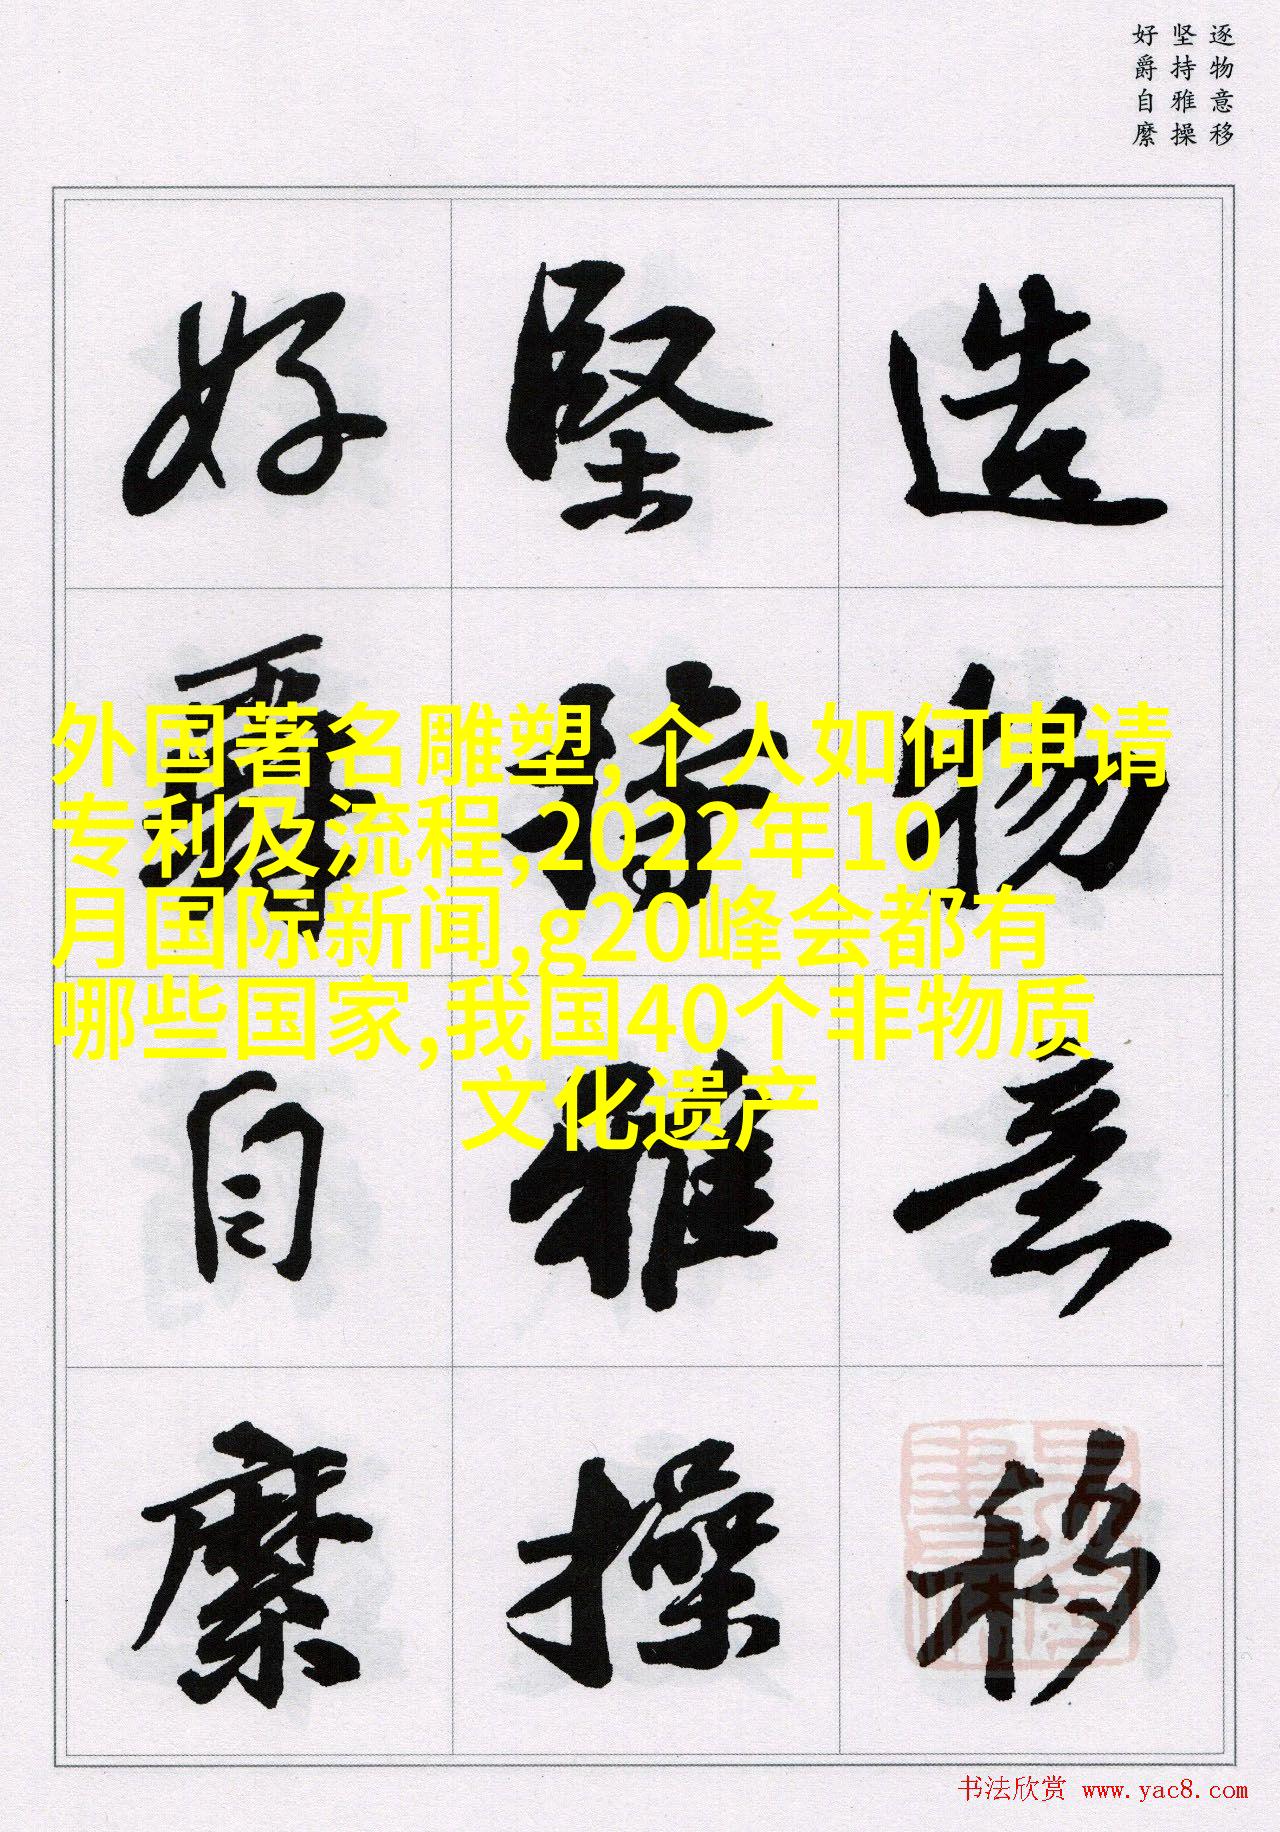 逐物意移
坚持雅操
好爵自縻
造物意移
堅持雅操
好爵自縻
外国著名雕塑,个人如何申请
专利及流程,2022年10
月国际新闻,g20峰会都有
哪些国家,我国40个非物质
文化遗产
书法欣赏 www.yac8.com